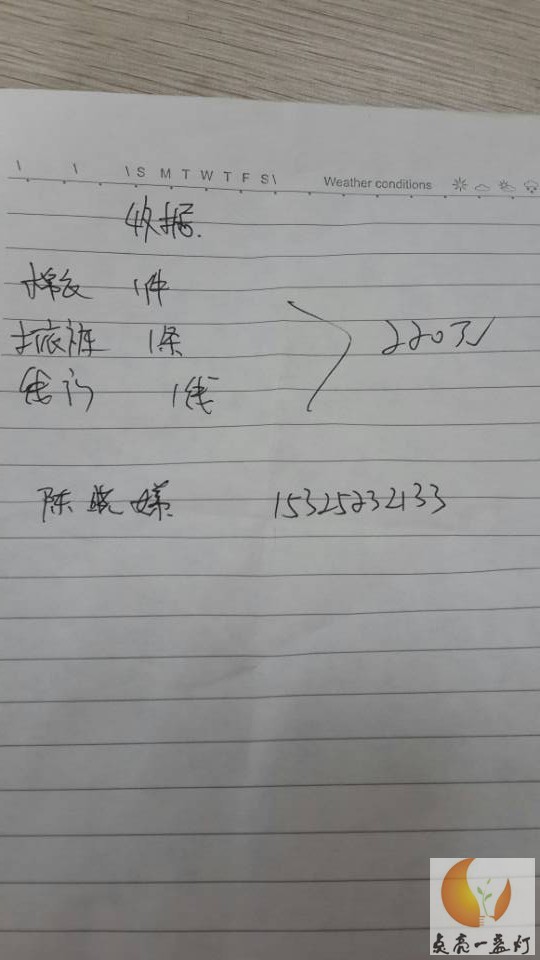 \ \ \ S M T W T F S \ Weather conditions
收据.
棉衣 1件
打底裤 1条 220元
1线
陈晓娣 15325232133
点亮一盏灯